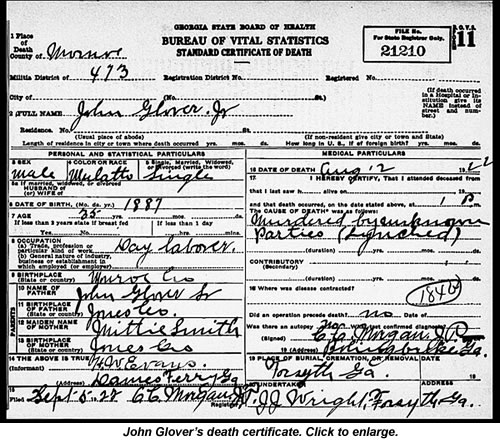 GEORGIA STATE BOARD OF HEALTH
BUREAU OF VITAL STATISTICS
STANDARD CERTIFICATE OF DEATH
FILE No.
For State Registrar Only.
21210
11
1 Place of Death
County of Monroe
Militia District of 473 Registration District No. Registered No.
City of (No. St.)
(If death occurred in a Hospital or Institution give its NAME instead of street and number.)
2 FULL NAME John Glover Jr
Residence. No. St.
(Usual place of abode) (If non-resident give city or town and State)
Length of residence in city or town where death occurred yrs. mos. ds. How long in U. S., if of foreign birth? yrs. mos. ds.
PERSONAL AND STATISTICAL PARTICULARS
3 SEX
male
4 COLOR OR RACE
Mulatto
5 Single, Married, Widowed, or Divorced (write the word)
Single
5a If married, widowed, or divorced
HUSBAND of
(or) WIFE of
6 DATE OF BIRTH, (Mo. da. yr.) 1887
7 AGE 35 yrs. mos. ds.
If less than 2 years state if breast fed If less than 1 day
Yes No hrs. min.
8 OCCUPATION
(a) Trade, profession or particular kind of work
Day laborer.
(b) General nature of industry, business or establishment in which employed (or employer)
9 BIRTHPLACE
(State or country)
Monroe Co
10 NAME OF FATHER
John Glover Sr
11 BIRTHPLACE OF FATHER
(State or country)
Jones Co.
PARENTS
12 MAIDEN NAME OF MOTHER
Mittie Smith
13 BIRTHPLACE OF MOTHER
(State or country)
Jones Co
14 THE ABOVE IS TRUE
(Informant) H. W. Evans.
(Address)
15
Filed Sept 5, 1922 C C Morgan
Registrar
MEDICAL PARTICULARS
16 DATE OF DEATH Aug 2 1922
17 I HEREBY CERTIFY, That I attended deceased from
that I last saw h alive on
and that death occurred, on the date stated above, at 1 P m.
The CAUSE OF DEATH* was as follows:
Murdered by unknown
Parties (Lynched)
(duration) yrs. mos. ds.
CONTRIBUTORY
(Secondary)
(duration) yrs. mos. ds.
18 Where was disease contracted?
Did an operation precede death? no Date of
Was there an autopsy no What test confirmed diagnosis?
(Signed) C C Morgan
(Address)
19 PLACE OF BURIAL, CREMATION, OR REMOVAL DATE
Forsyth Ga.
20 UNDERTAKER
J J Wright, Forsyth Ga.
John Glover's death certificate. Click to enlarge.